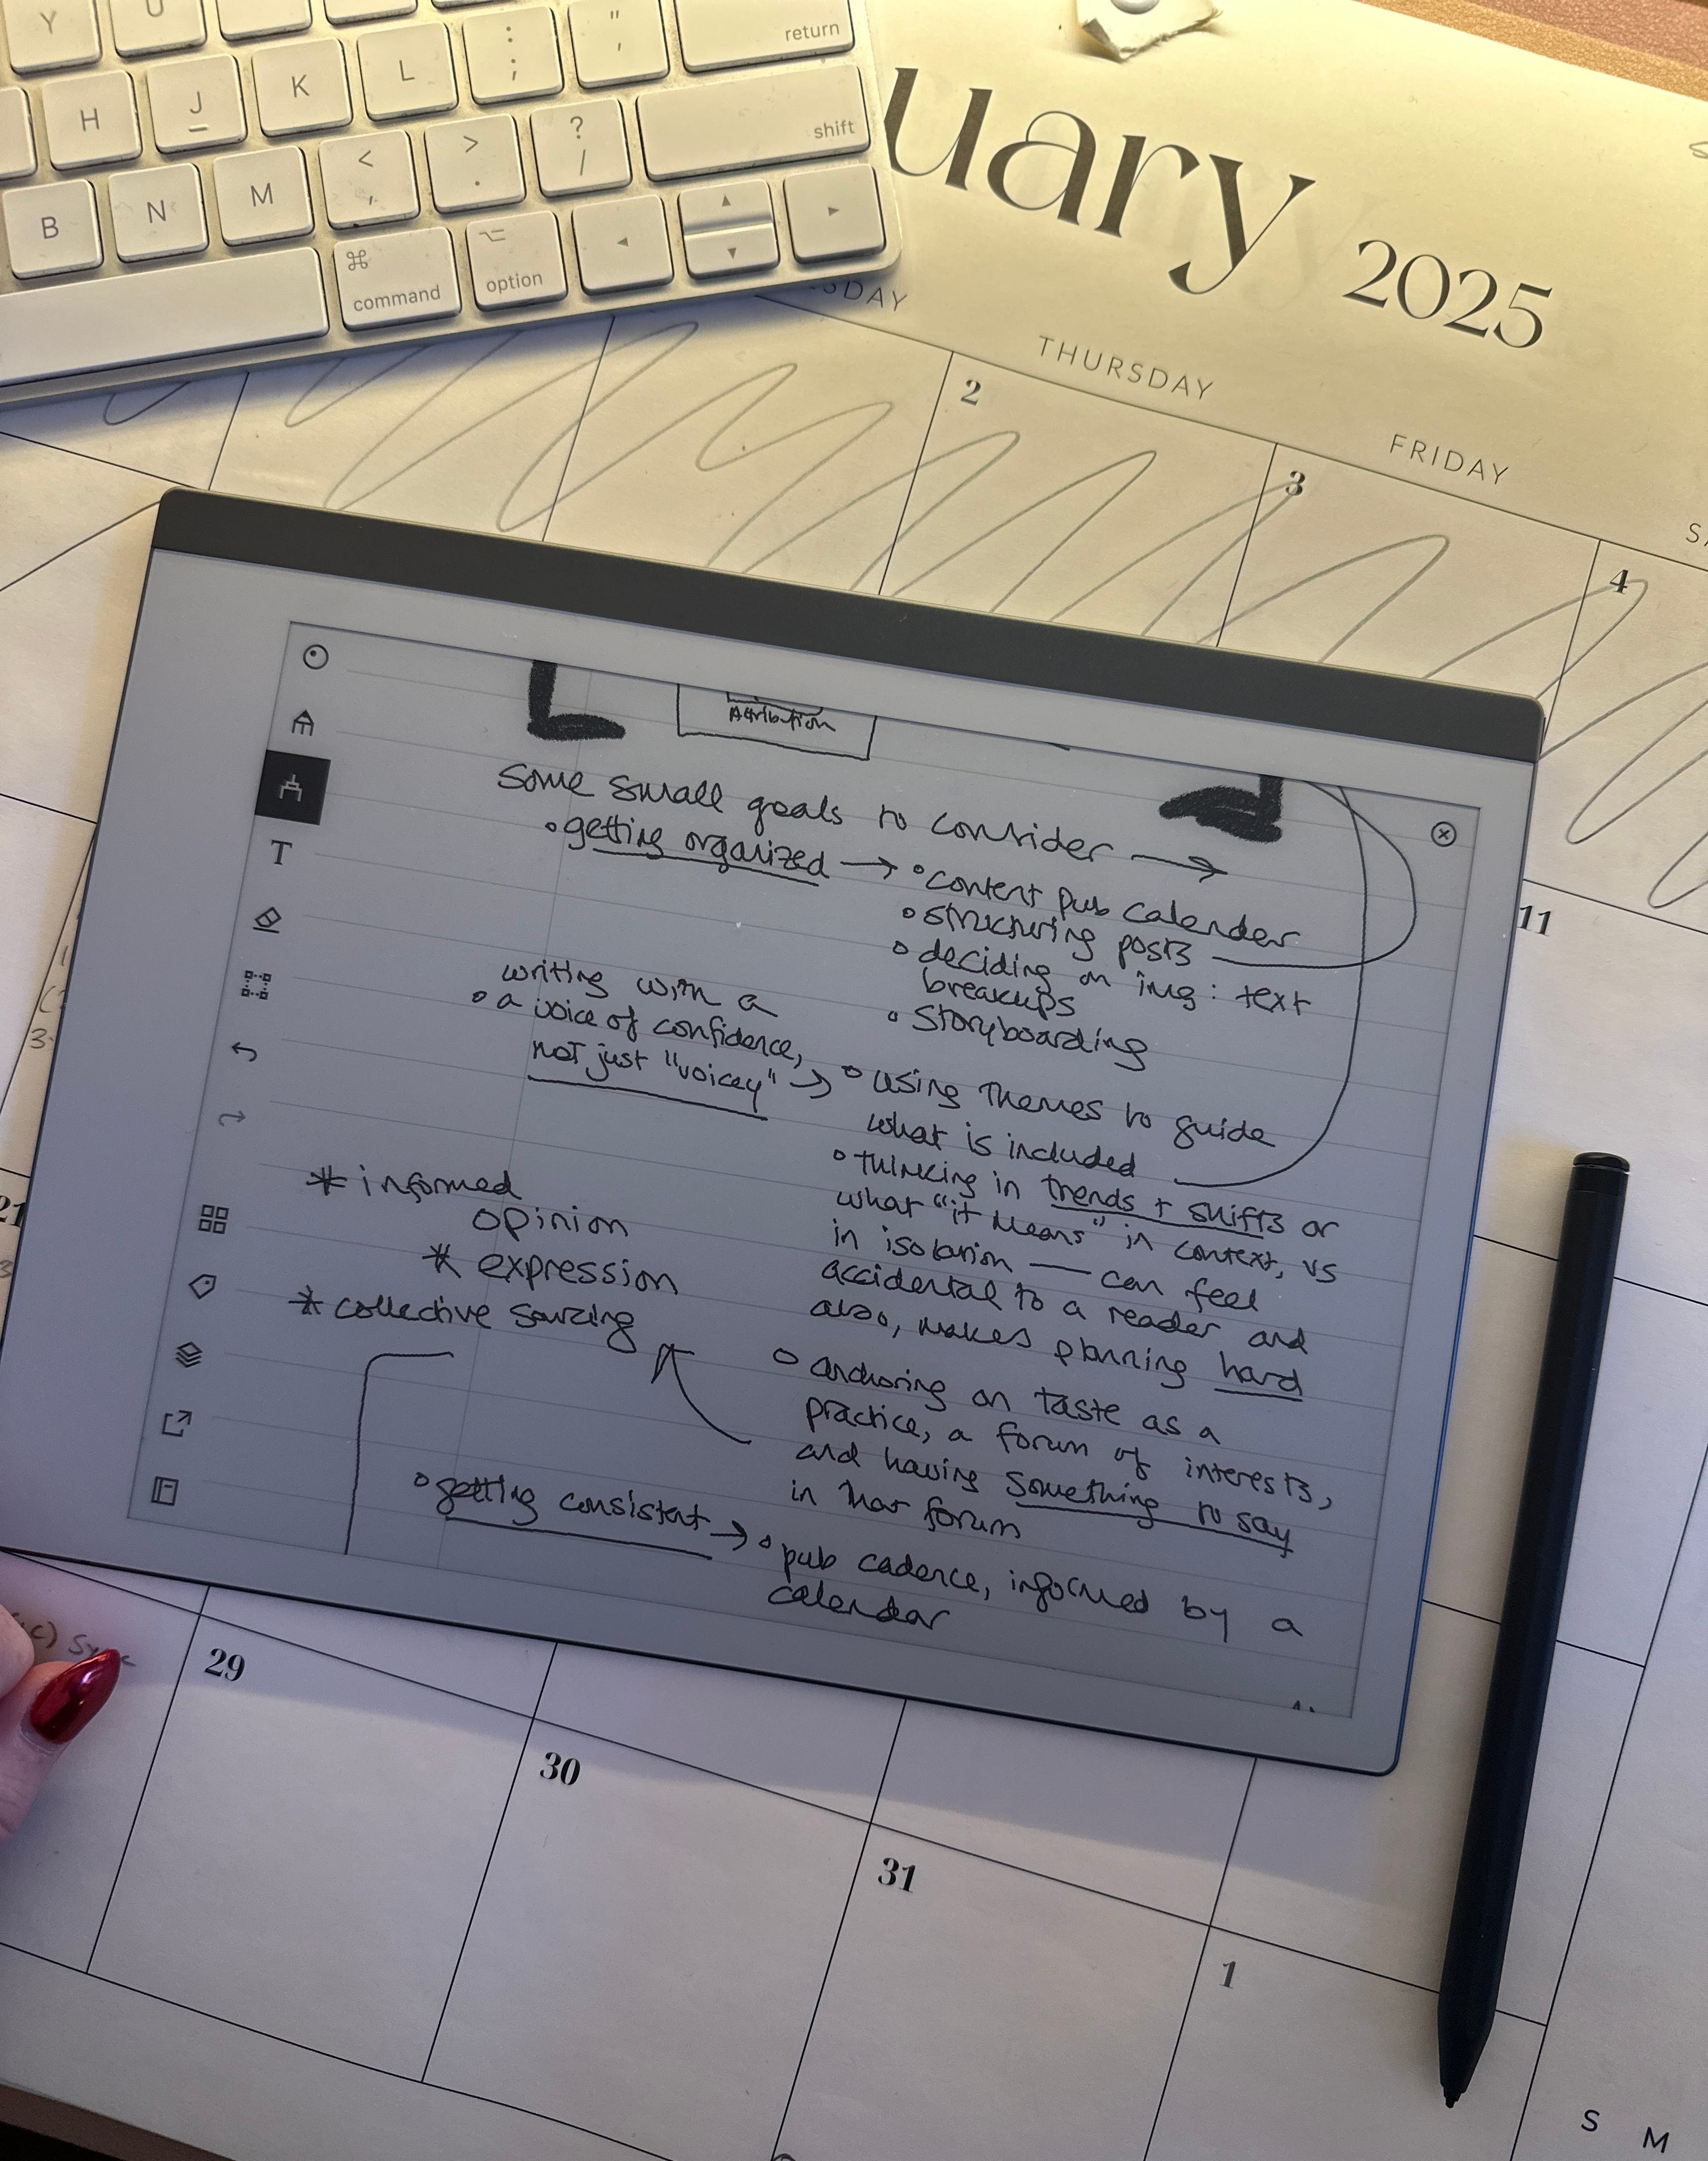 Y
U
:
;
"
'
return
H
J
K
L
B
N
M
<
,
>
.
?
/
shift
⌘
command
⌥
option
uary 2025
SDAY
THURSDAY
FRIDAY
2
3
4
11
21
29
30
31
1
S M
T
Attribution
Some small goals to consider →
• getting organized → • content pub calender
• structuring posts
• deciding on img : text
breakups
• Storyboarding
writing with a
• a voice of confidence,
not just "voicey" → • using themes to guide
what is included
• thinking in trends + shifts or
what "it means" in context, vs
in isolation — can feel
accidental to a reader and
also, makes planning hard
• anchoring on taste as a
practice, a forum of interests,
and having something to say
in that forum
* informed
opinion
* expression
* collective sourcing
• getting consistent → • pub cadence, informed by a
calendar